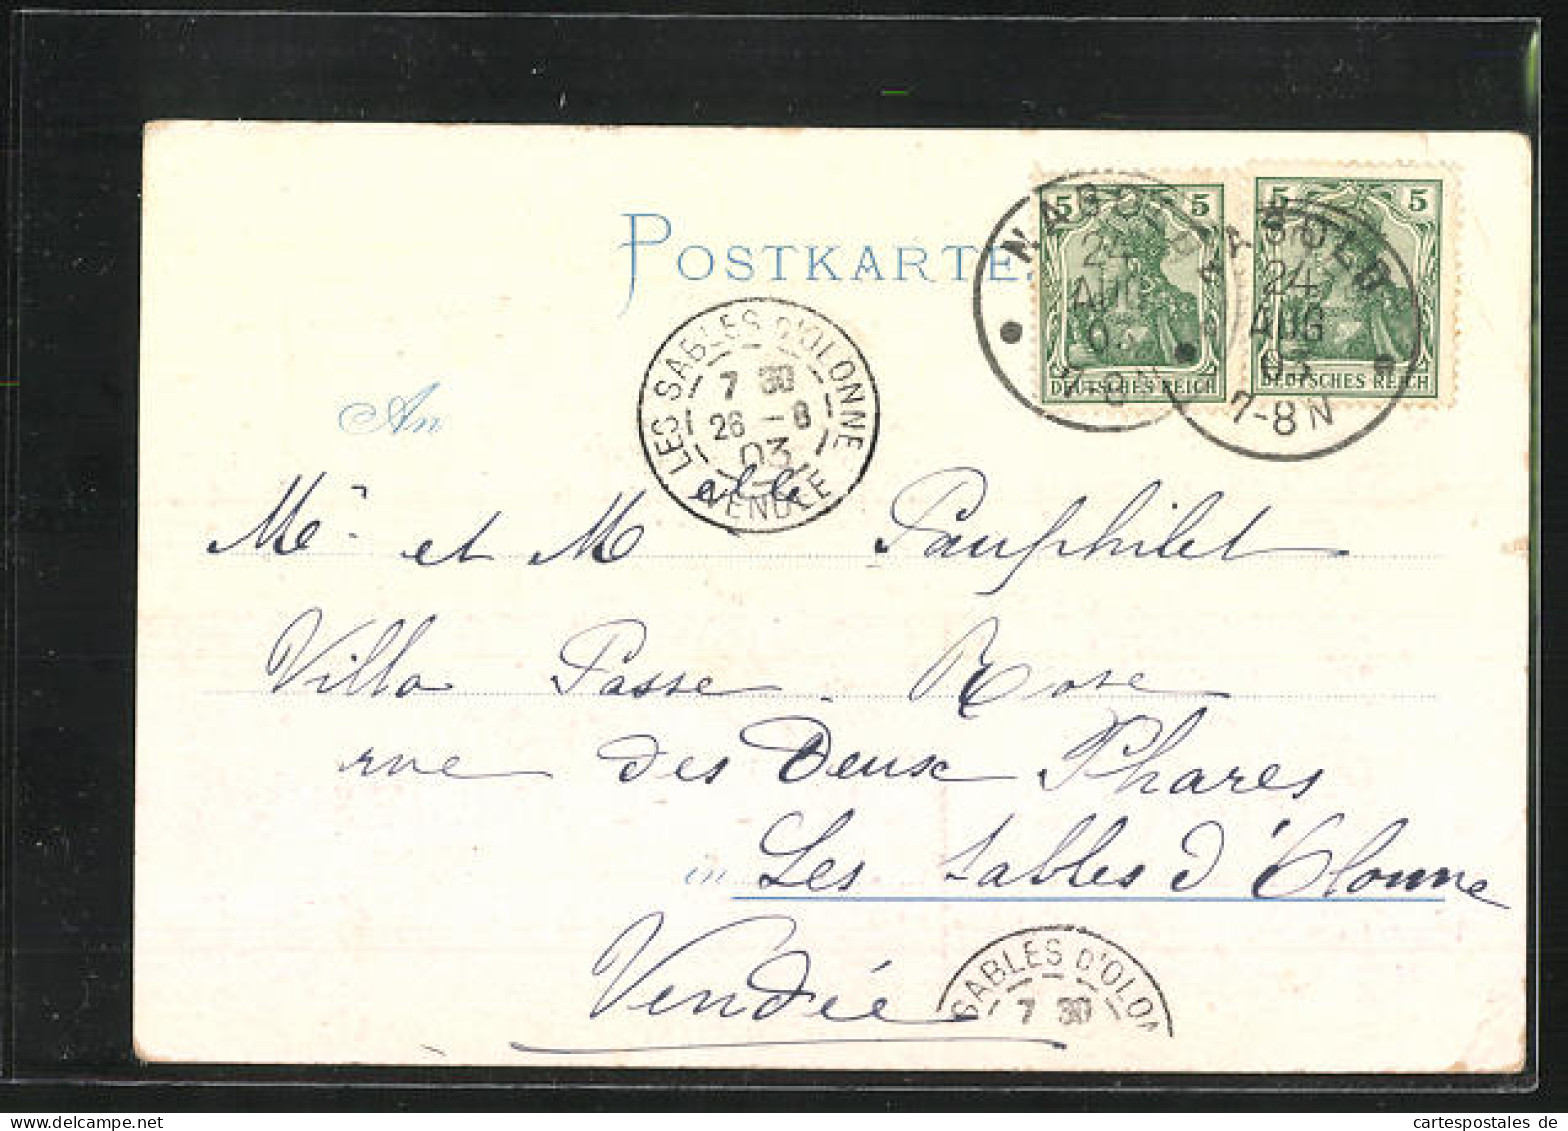 POSTKARTE
5 5
DEUTSCHES REICH
5 5
DEUTSCHES REICH
NAGOLD
24
AUG
7-8N
NAGOLD
24
AUG
03
7-8N
LES SABLES D'OLONNE
7 30
26 -8
03
VENDÉE
An
Me et Melle Pauphilet
Villa Passe-Rose
rue des Deux Phares
in Les Sables d'Olonne
Vendée
SABLES D'OLON
7 30
cartespostales de